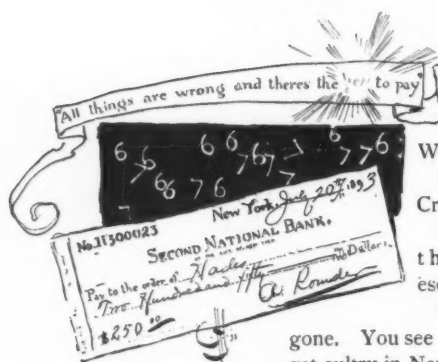 "All things are wrong and theres the to pay"
6 6 6 6
7 6 7 6 7 7 7 6
6 6 7 6 7
7
New York, July 20th 1893
No. 11300023
SECOND NATIONAL BANK.
Pay to the order of Hades
Two Hundred and fifty no Dollars,
$250.00
W
Cr
t h
esc
gone. You see
get sultry in New